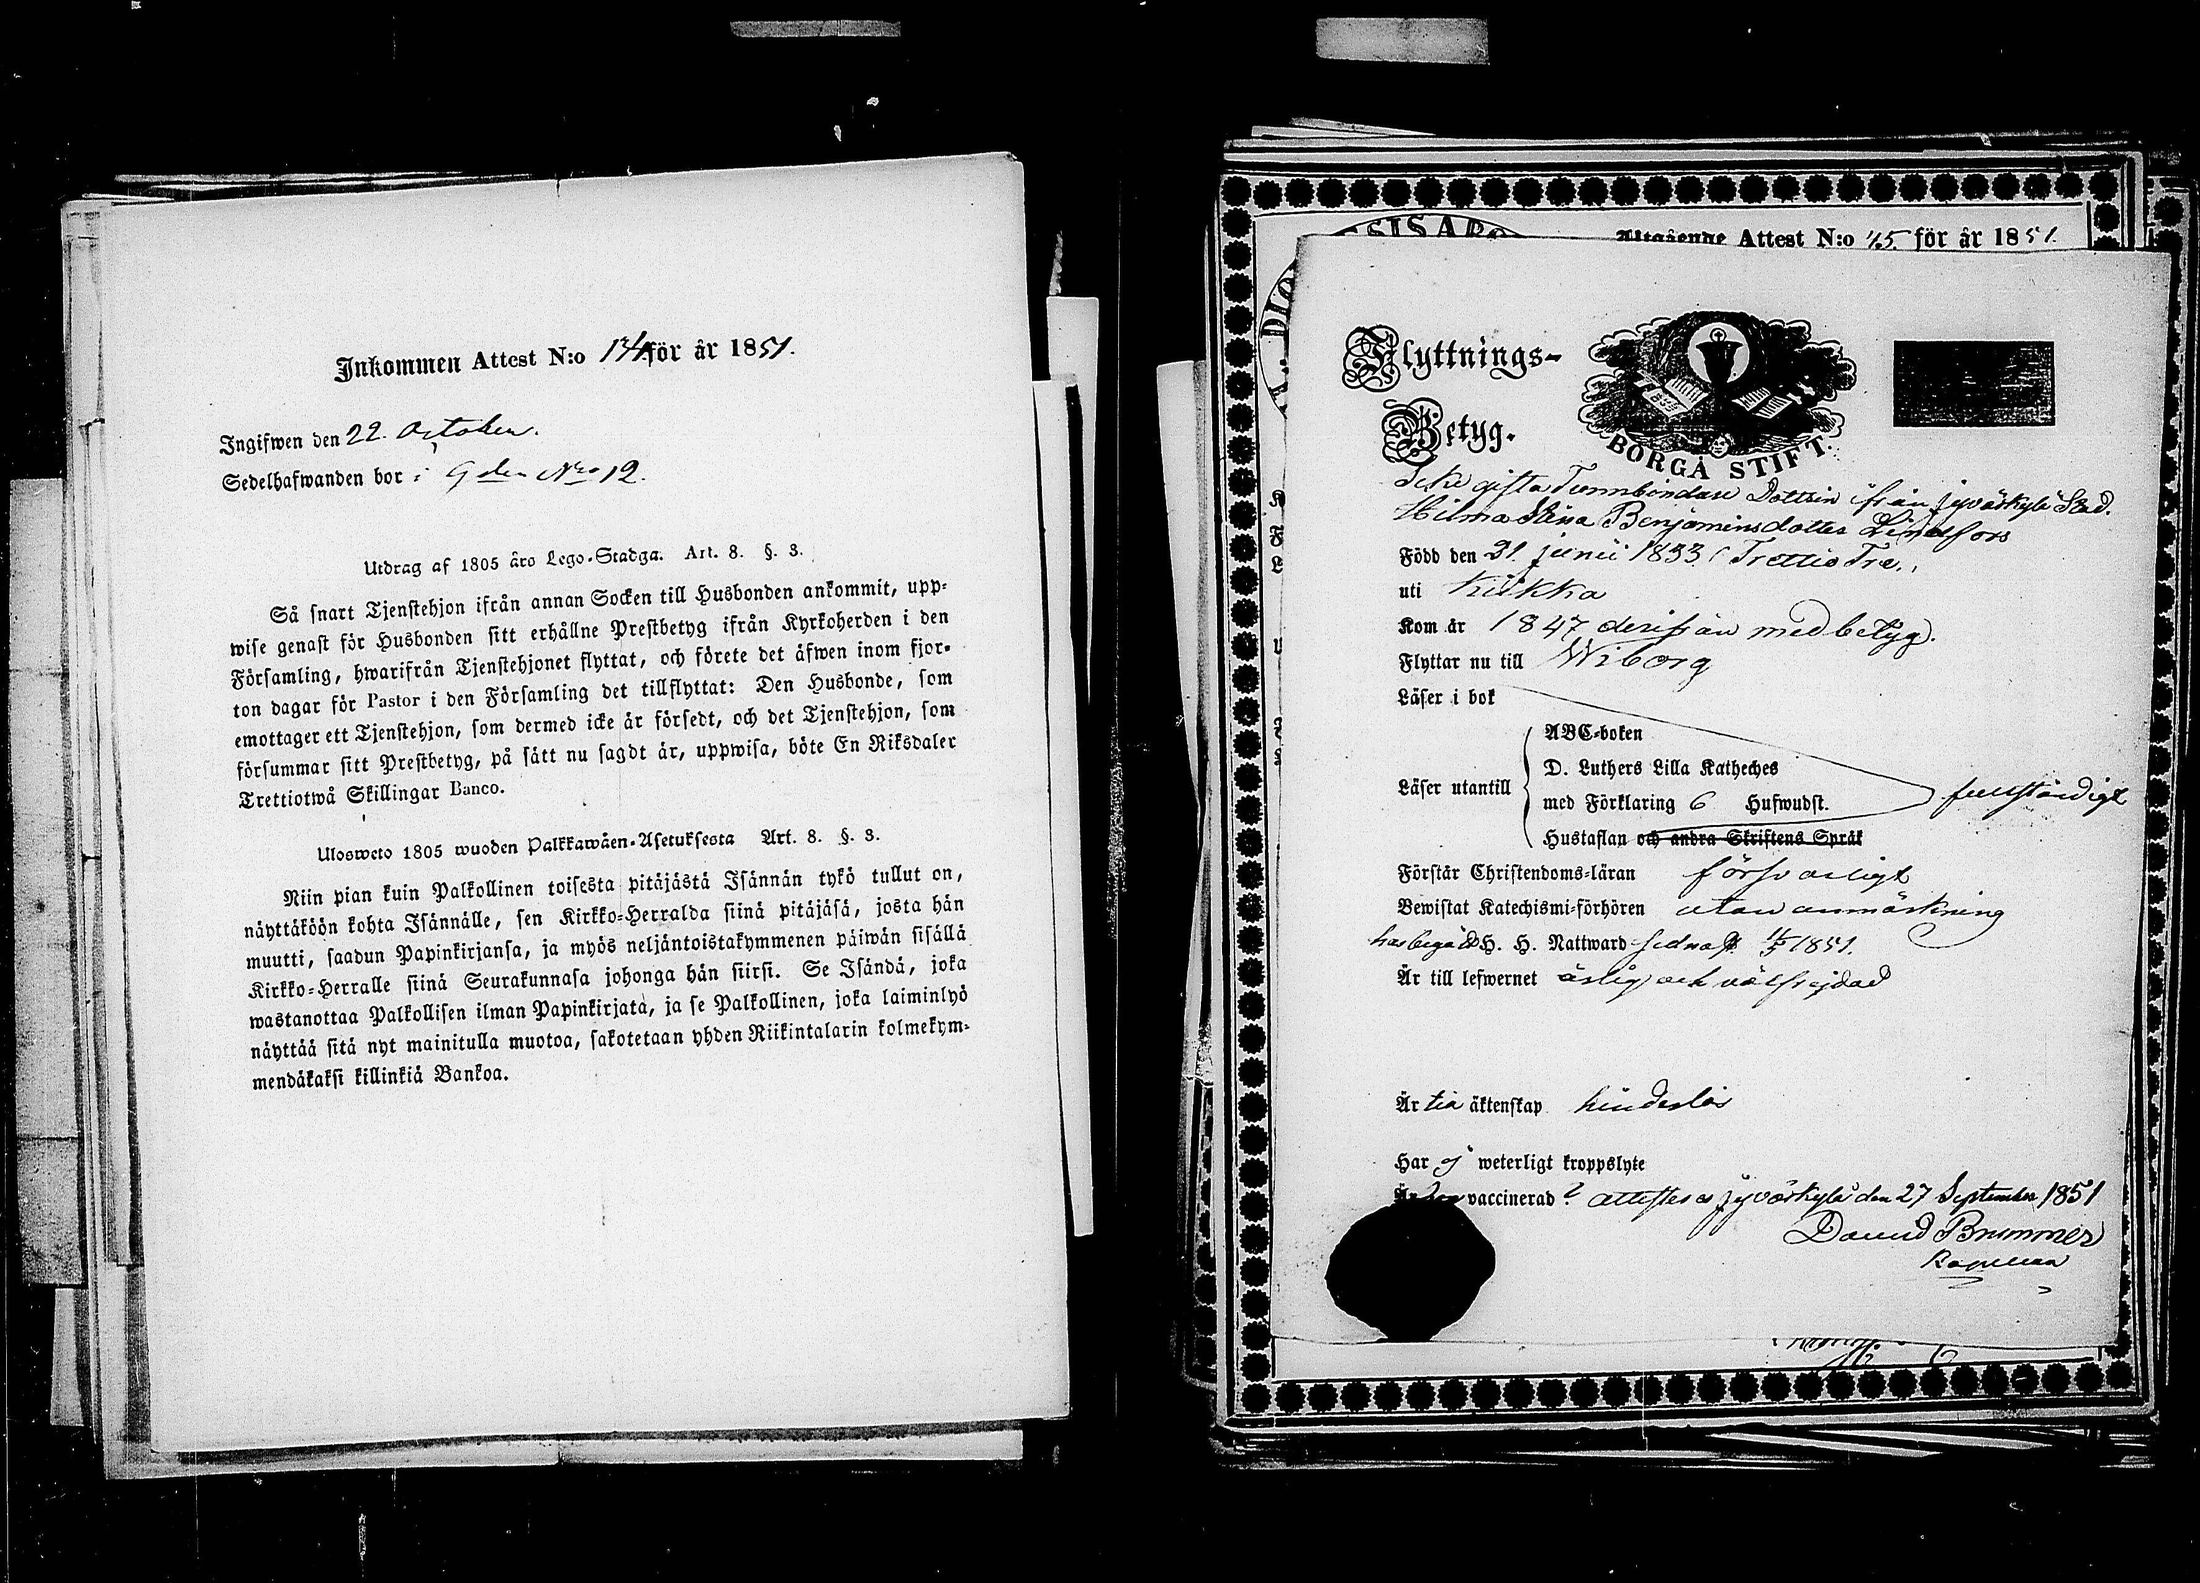 Inkommen Attest N:o 134 för år 1851.
Ingifwen den 22. October.
Sedelhafwanden bor i Gden Nro 12.
Utdrag af 1805 års Lego-Stadga. Art. 8. §. 3.
Så snart Tjenstehjon ifrån annan Socken till Husbonden ankommit, upp-
wise genast för Husbonden sitt erhållne Prestbetyg ifrån Kyrkoherden i den
Församling, hwarifrån Tjenstehjonet flyttat, och förete det äfwen inom fjor-
ton dagar för Pastor i den Församling det tillflyttat: Den Husbonde, som
emottager ett Tjenstehjon, som dermed icke är försedt, och det Tjenstehjon, som
försummar sitt Prestbetyg, på sätt nu sagdt är, uppwisa, böte En Riksdaler
Trettiotwå Skillingar Banco.
Ulosweto 1805 wuoden Palkkawäen-Asetuksesta Art. 8. §. 3.
Niin pian kuin Palkollinen toisesta pitäjästä Isännän tykö tullut on,
näyttäköön kohta Isännälle, sen Kirkko-Herralda siinä pitäjäsä, josta hän
muutti, saadun Papinkirjansa, ja myös neljäntoistakymmenen päiwän sisällä
Kirkko-Herralle siinä Seurakunnasa johonga hän siirsi. Se Isändä, joka
wastanottaa Palkollisen ilman Papinkirjata, ja se Palkollinen, joka laiminlyö
näyttää sitä nyt mainitulla muotoa, sakotetaan yhden Riikintalarin kolmekym-
mendäkaksi killinkiä Bankoa.
Attest N:o för år 1851.
Flyttnings-
Betyg.
BORGÅ STIFT.
Icke gifta Dottren ifrån Jyväskylä Stad.
Hilma Stina Benjaminsdotter Lindfors
Född den 21 junii 1833 (Trettio Tre.,
uti Kukka
Kom år 1847 derifrån med betyg.
Flyttar nu till Wiborg
Läser i bok
Läser utantill
ABC-boken
D. Luthers Lilla Katheches
med Förklaring 6 Hufwudst.
Hustaflan och andra Skriftens Språk
fullständigt
Förstår Christendoms-läran försvarligt
Bewistat Katechismi-förhören utan anmärkning
har begådt H. H. Nattward sednast 1851.
Är till lefwernet ärlig och välfrejdad
Är till äktenskap hinderlös
Har ej weterligt kroppslyte
Är vaccinerad? attesteras Jyväskylä den 27 September 1851
David Brummer
Kapellan